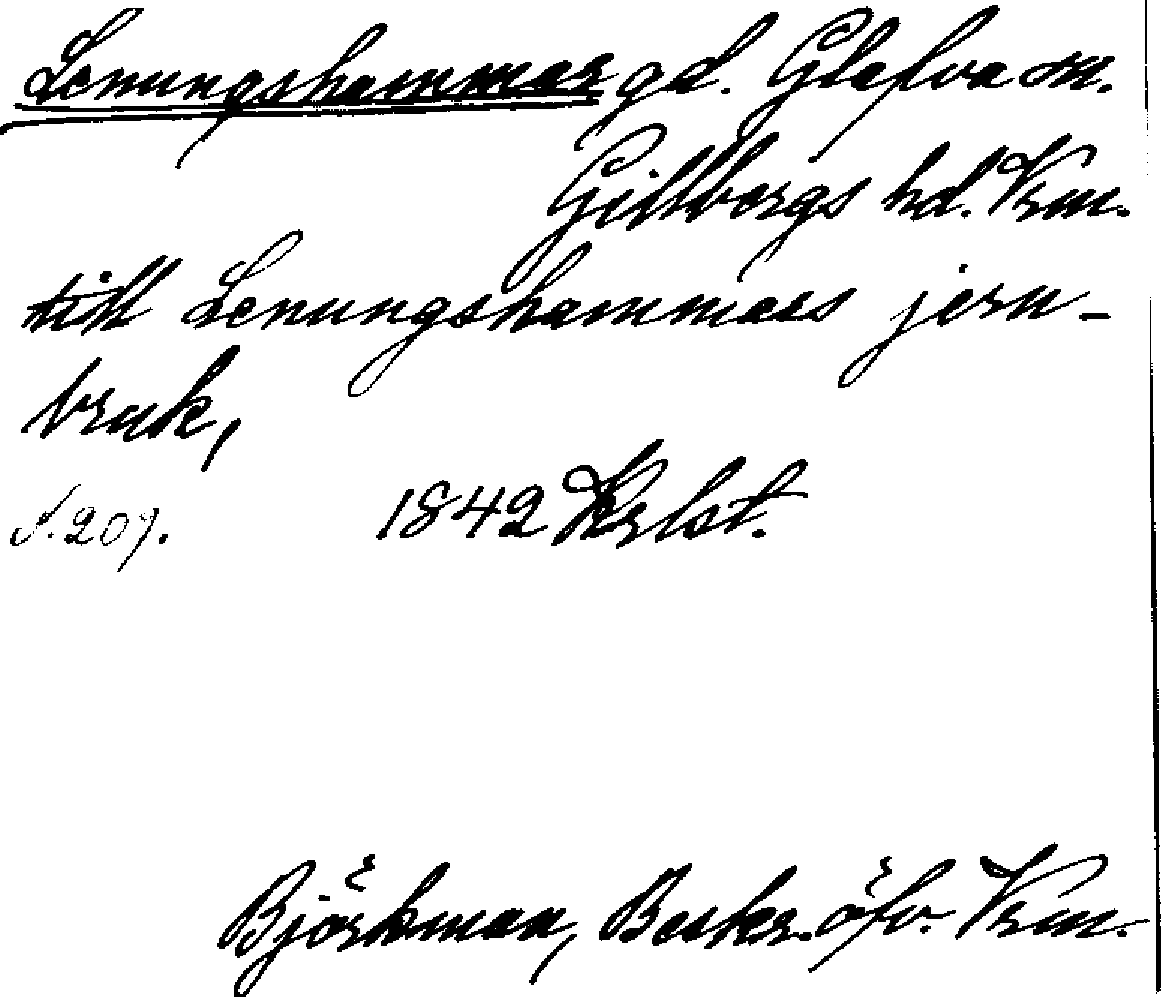 Lenungshammar gd. Glafva sn.
Gillbergs hd. Vrm.
till Lenungshammars jern-
bruk,
S. 207. 1842 Krlst.
Björkman, Beskr. öfv. Vrm.